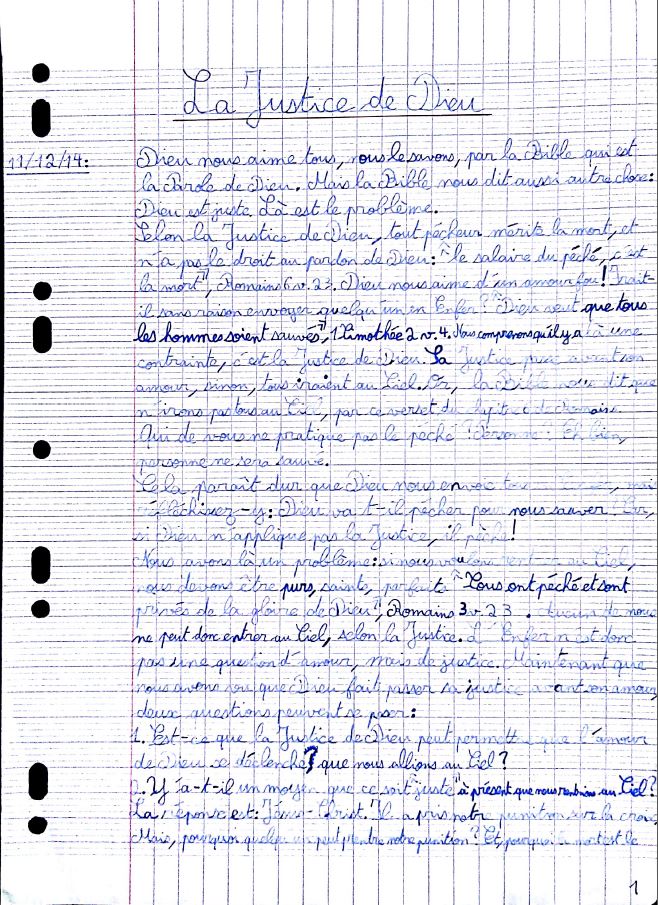 La Justice de Dieu
11/12/14:
Dieu nous aime tous, nous le savons, par la Bible qui est
la Parole de Dieu. Mais la Bible nous dit aussi autre chose:
Dieu est juste. Là est le problème.
Selon la Justice de Dieu, tout pécheur mérite la mort, et
n'a pas le droit au pardon de Dieu: "le salaire du péché, c'est
la mort", Romains 6 v. 23. Dieu nous aime d'un amour fou! Irait-
il sans raison envoyer quelqu'un en Enfer? "Dieu veut que tous
les hommes soient sauvés", 1 Timothée 2 v. 4. Nous comprenons qu'il y a là une
contrainte, c'est la Justice de Dieu. Sa Justice passe avant son
amour, sinon, tous iraient au Ciel. Or, la Bible nous dit que
n'irons pas tous au Ciel, par ce verset du 6 de Romains.
Qui de vous ne pratique pas le péché? Personne? Eh bien,
personne ne sera sauvé.
Cela paraît dur que Dieu nous envoie tous mais
réfléchissez-y: Dieu va-t-il pécher pour nous sauver? Car,
si Dieu n'applique pas la Justice, il pèche!
Nous avons là un problème: si nous voulons au Ciel,
nous devons être purs, saints, parfaits. "Tous ont péché et sont
privés de la gloire de Dieu", Romains 3 v. 23. Aucun de nous
ne peut donc entrer au Ciel, selon la Justice. L'Enfer n'est donc
pas une question d'amour, mais de justice. Maintenant que
nous avons vu que Dieu fait passer sa justice avant son amour,
deux questions peuvent se poser:
1. Est-ce que la Justice de Dieu peut permettre que l'amour
de Dieu se déclenche? que nous allions au Ciel?
2. Y a-t-il un moyen que ce soit "juste" à présent que nous rentrions au Ciel?
La réponse est: Jésus-Christ. Il a pris notre punition sur la croix.
Mais, pourquoi quelqu'un peut prendre notre punition? Et, pourquoi la mort est le
1